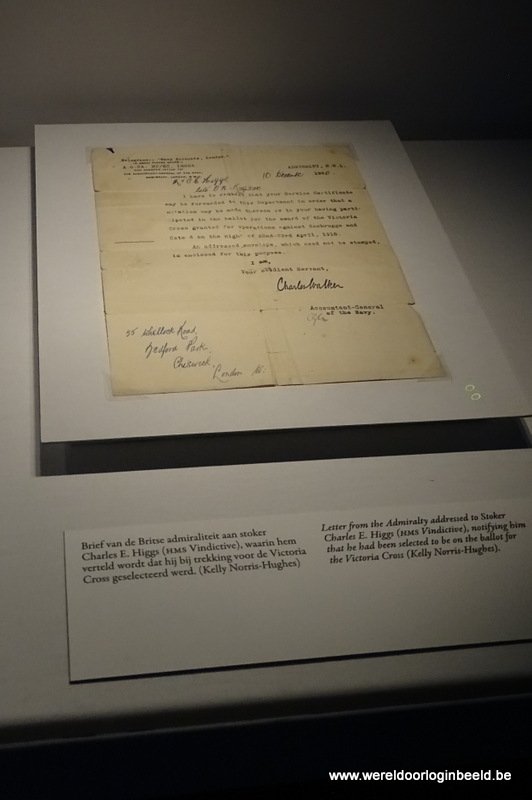 Telegrams: "Navy Accounts, London."
10 December 1920
ADMIRALTY, S.W.1.
I have to request that your Service Certificate
may be forwarded to this Department in order that a
notation may be made thereon as to your having parti-
cipated in the ballot for the award of the Victoria
Cross granted for operations against Zeebrugge and
Ostend on the night of 22nd-23rd April, 1918.
An addressed envelope, which need not be stamped,
is enclosed for this purpose.
I am,
Your obedient Servant,
Charles Walker
Accountant-General
of the Navy.
55 Road,
Bedford Park,
Chiswick
London W.
Brief van de Britse admiraliteit aan stoker
Charles E. Higgs (HMS Vindictive), waarin hem
verteld wordt dat hij bij trekking voor de Victoria
Cross geselecteerd werd. (Kelly Norris-Hughes)
Letter from the Admiralty addressed to Stoker
Charles E. Higgs (HMS Vindictive), notifying him
that he had been selected to be on the ballot for
the Victoria Cross (Kelly Norris-Hughes).
www.wereldoorloginbeeld.be